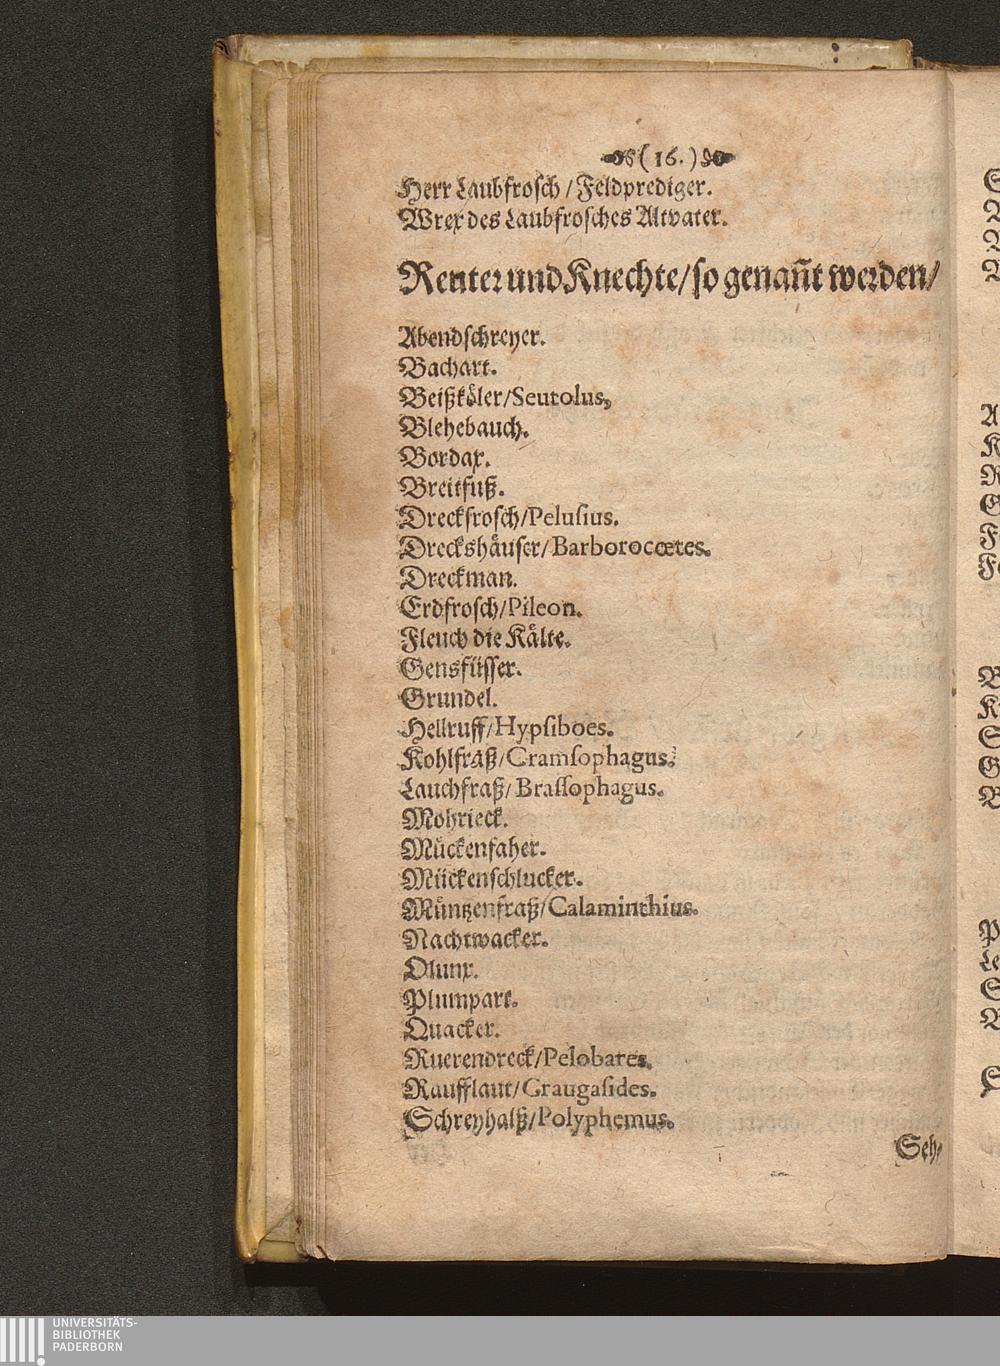 (16.)
Herr Laubfrosch / Feldprediger.
Wrex des Laubfrosches Altvater.
Reuter und Knechte / so genañt werden /
Abendschreyer.
Bachart.
Beißköler / Seutolus,
Blehebauch.
Bordax.
Breitfuß.
Dreckfrosch / Pelusius.
Dreckshäuser / Barborocœtes.
Dreckman.
Erdfrosch / Pileon.
Fleuch die Kälte.
Gensfüsser.
Grundel.
Hellruff / Hypsiboes.
Kohlfräß / Cramsophagus.
Lauchfraß / Brassophagus.
Mohrieck.
Mückenfaher.
Mückenschlucker.
Müntzenfraß / Calaminthius.
Nachtwacker.
Olunx.
Plumpart.
Quacker.
Ruerendreck / Pelobares.
Raufflaut / Craugasides.
Schreyhalß / Polyphemus.
Seh-
UNIVERSITÄTS-
BIBLIOTHEK
PADERBORN